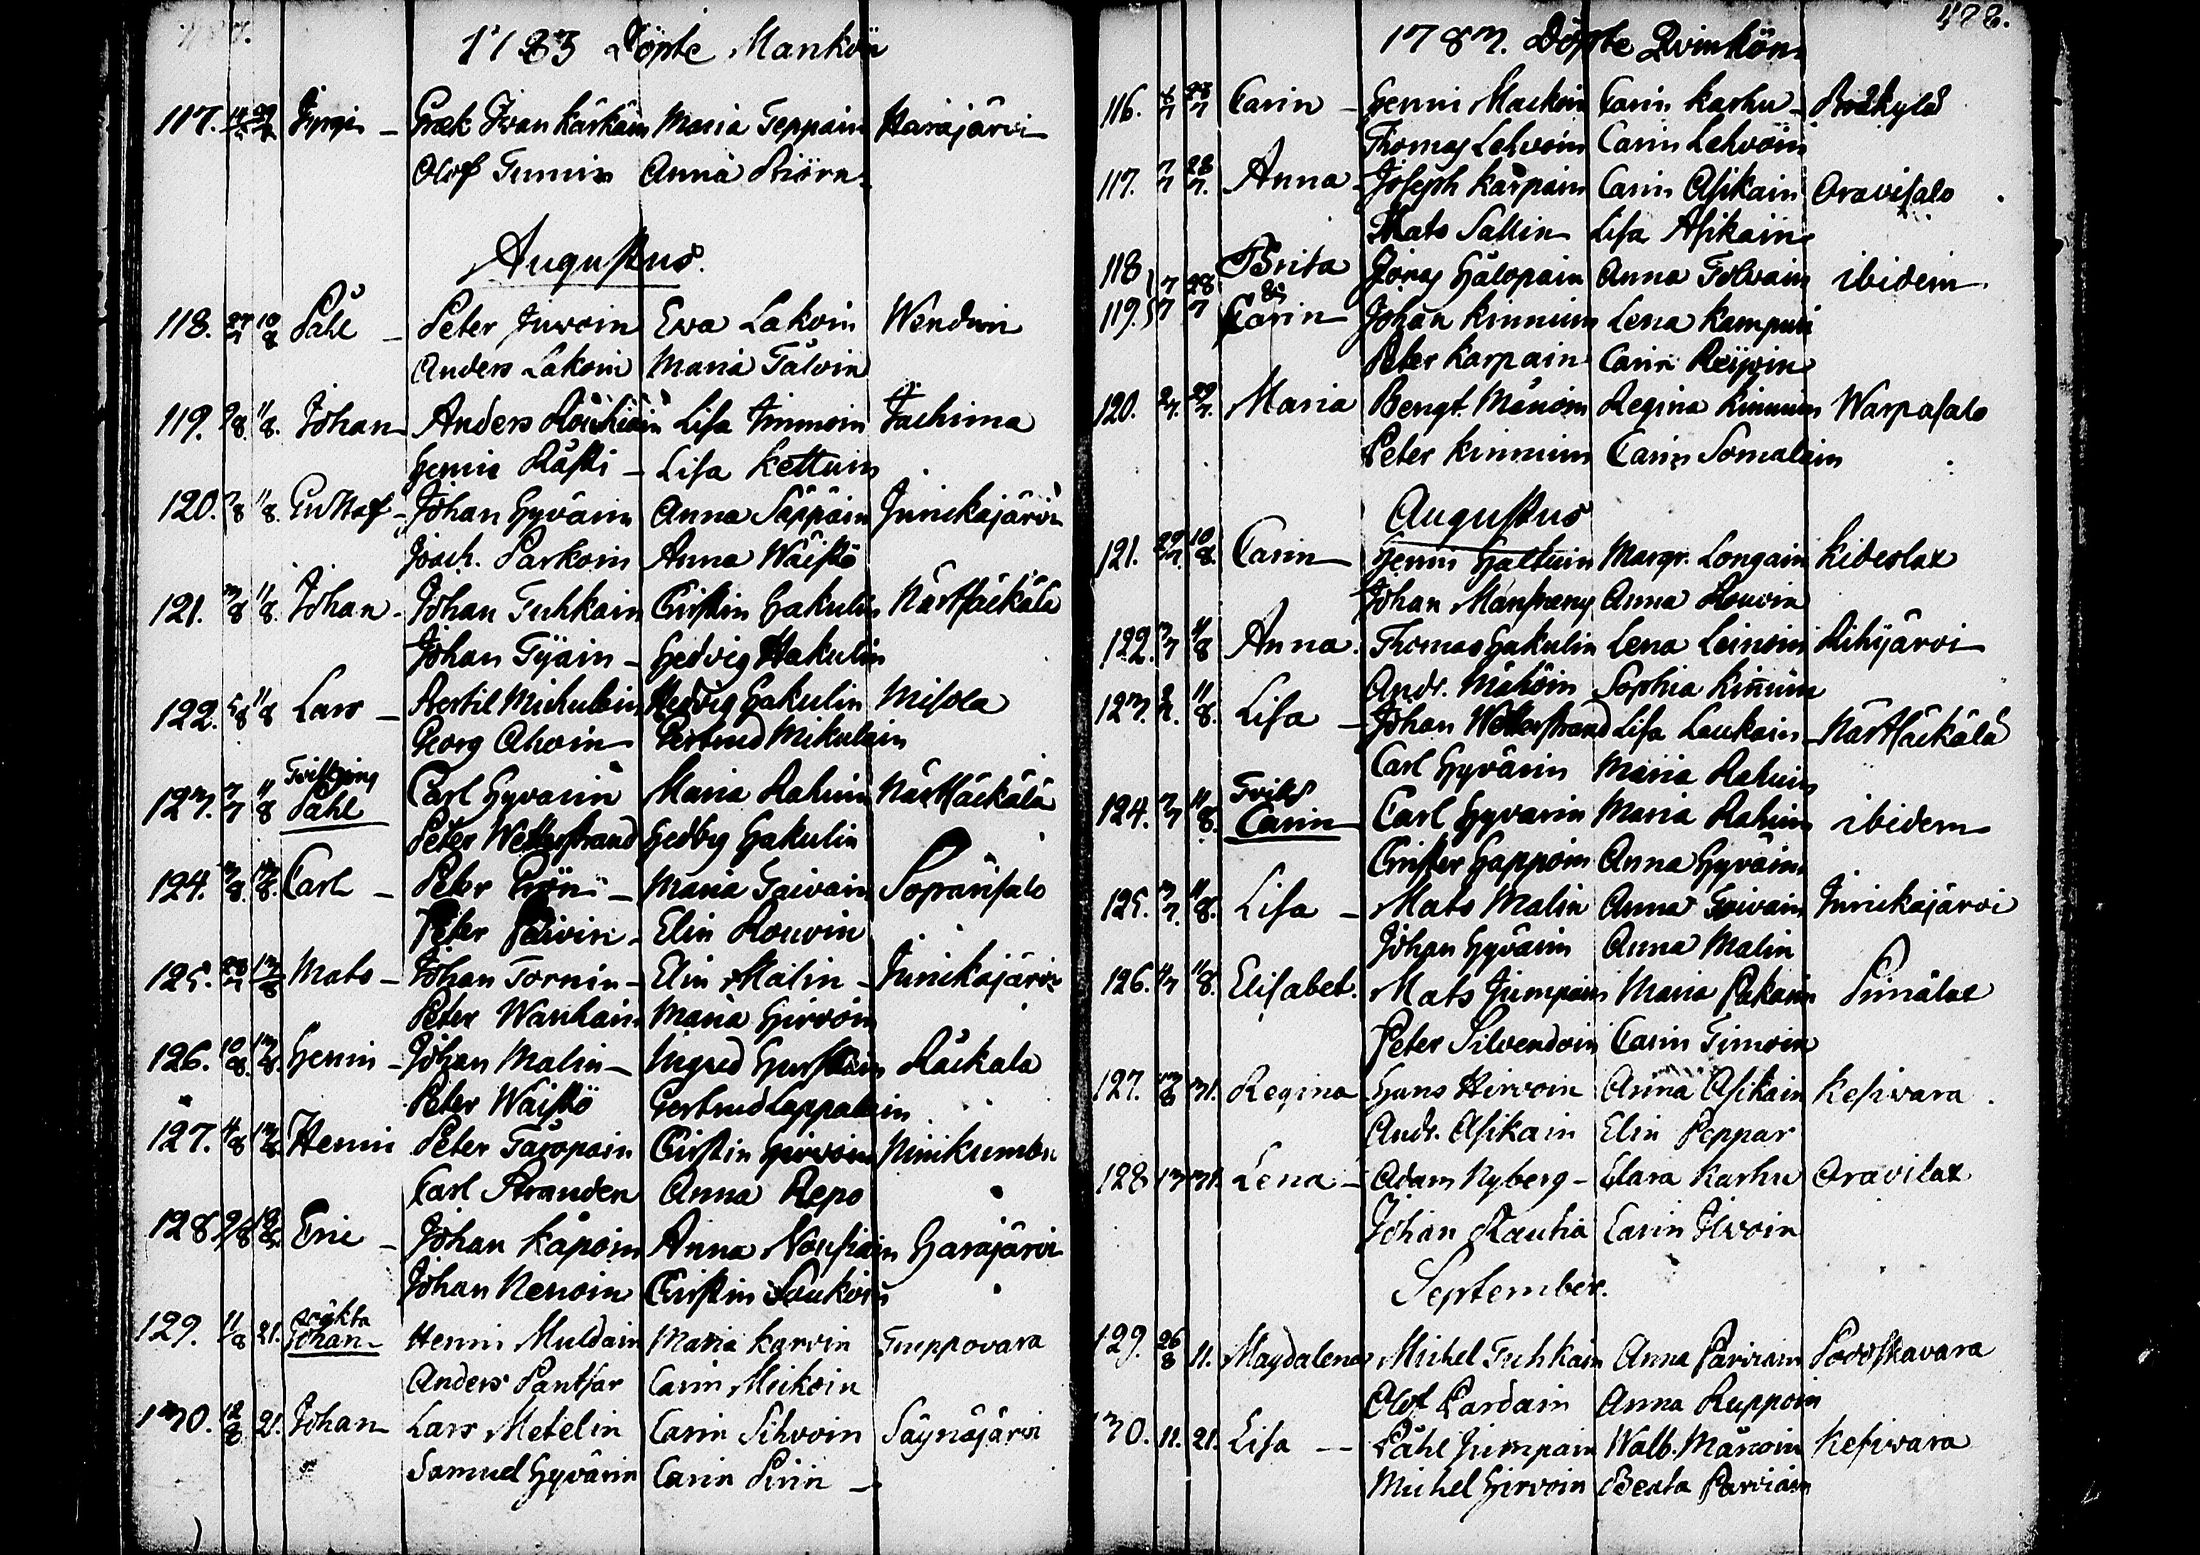 1783 Döpte Mankön
117. Jyrgi – Græk Ivan Kärkäin Maria Teppain Harajärvi
Olof Tumin Anna Biörn
Augustus.
118. 27/7 10/8 Påhl – Peter Juvoin Eva Lakoin Wendwin
Anders Lakoin Maria Tälvin
119. 7/8. 11/8. Johan Anders Lisa Immoin
Henric Räski – Lisa Kettuin
120. 7/8 11/8. Gustaf – Johan Hyvärin Anna Säppäin Juurikajärvi
Joach. Parkoin Anna Wäistö
121. 3/8 11/8. Johan – Johan Tuhkain Christin Hakulin Närsäckälä
Johan Tijain – Hedvig Hakulin
122. 5/8 11/8 Lars – Bertil Mickulain Hedvig Hakulin Misola
Georg Ahoin Gertrud Mikulain
Tvilling
123. 7/7 11/8 Påhl Carl Hyvärin Maria Rahuin Närsäckälä
Peter Wetterstrand Hedvig Hakulin
124. 3/8. 13/8. Carl – Peter Grön – Maria Taivain Sopänsalo
Peter Päivin – Elin Rouvin
125. 28/7 13/8 Mats – Johan Tornin – Elin Malin – Juurikajärvi
Peter Wauhain Maria Hirvoin
126. 10/8. 13/8. Henric – Johan Malin – Ingred Räckälä
Peter Wäistö Gertrud Lappalain
127. 4/8 13/8 Henric Peter Taropain Christin Hirvoin Niinikumbu
Carl Stranden Anna Repo
128 9/8 Eric – Johan Kåpoin Anna Nousiain Harajärvi
Johan Nenoin Christin Soukoin
oäkta
129. 11/8 21. Johan – Henric Muldain Maria Karvin Tuppovara
Anders Pantsar Carin Meikoin
130. 12/8 21. Johan Lars Metelin Carin Sihvoin Säynäjärvi
Samuel Hyvärin Carin Sirin –
478.
1783. Döpte Qvinkön
116. 6/7 28/7 Carin – Henric Mackoin Carin Karhu – Bråkylä
Thomas Lehvoin Carin Lehvoin
117. 7/7 28/7. Anna – Joseph Karpain Carin Asikain Oravisalo
Mats Sallin Lisa Asikain
118 Brita Jöran Hälopain Anna Tolvain ibidem
7/7 28/7 &
119. Carin Johan Kinnuin Lena Kampuri
Peter Karpain Carin Reijoin
120. 2/7. 29/7. Maria Bengt Mänoin Regina Kinnuin Warpasalo
Peter Kinnuin Carin Somalain
Augustus
121. 29/7. 10/8. Carin – Henric Haltuin Margr. Longain Kideslax
Johan Mansraeng Anna Rouvin
122. 3/7 11/8 Anna. Thomas Hakulin Lena Leinoin Rihijärvi
Andr. Mähöin Sophia Kiñuin
123. 2/7. 11/8. Lisa – Johan Wetterstrand Lisa Laukain – Närsäckälä
Carl Hyvärin Maria Rahuin
Tvill
124. 3/7 11/8. Carin Carl Hyvärin Maria Rahuin ibidem
Christer Happoin Anna Hyväin
125. 3/7. 11/8. Lisa – Mats Malin Anna Taivain Juurikajärvi
Johan Hyvärin Anna Malin
126. 4/7 11/8. Elisabet. Mats Jumpain Maria Pakain Simälax
Peter Silvendoin Carin Timoin
127. 13/8 31. Regina Hans Hirvoin Anna Asikain Kesivara
Andr. Asikain Elin Peppar
128 13 31. Lena – Adam Nyberg – Clara Karhu Oravilax
Johan Rautia Carin Ilvoin
September.
129. 26/8 11. Magdalena Michel Tuhkain Anna Parviain
Olof Pardain Anna Ruppoin
130. 11. 21. Lisa – – Påhl Jumpain Walb. Mänoin Kesivara
Michel Hirvoin Beata Parviain